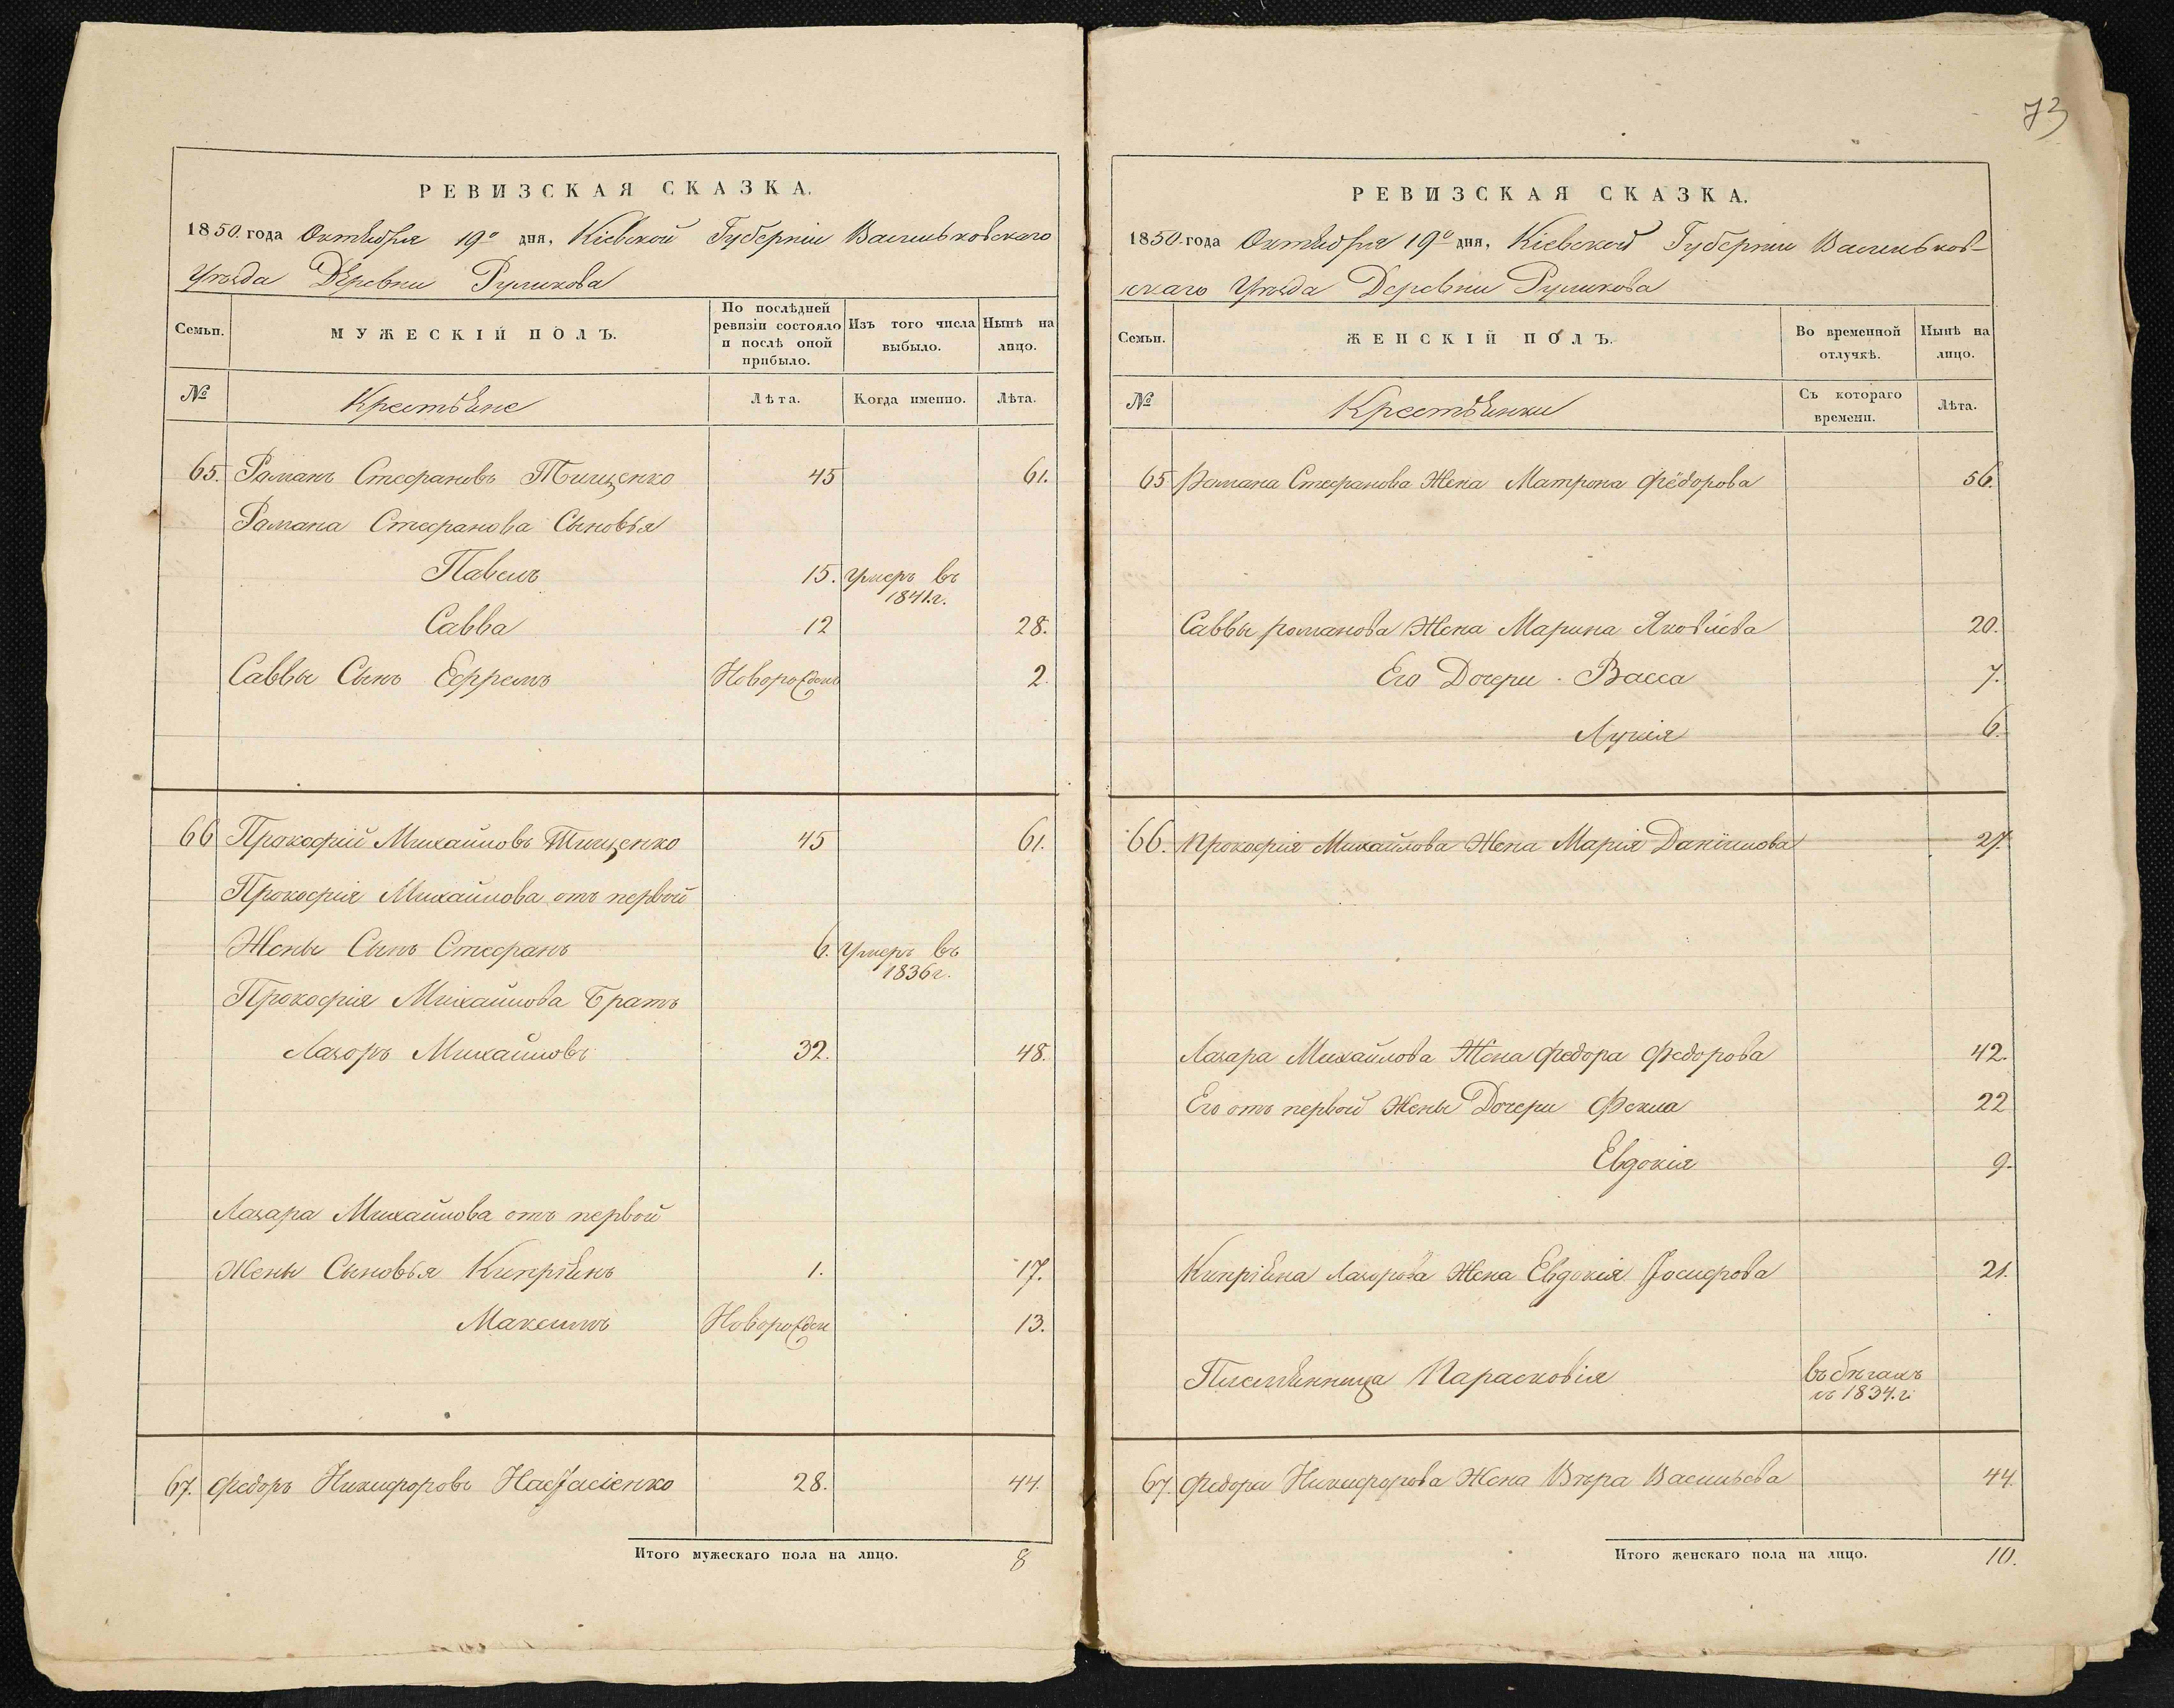 РЕВИЗСКАЯ СКАЗКА.
1850. года Октября 19го дня, Кіевской Губерніи Васильковскаго
Уѣзда Деревни Руликова
Семьи.
МУЖЕСКІЙ ПОЛЪ.
По послѣдней ревизіи состояло и послѣ оной прибыло.
Изъ того числа выбыло.
Нынѣ на лицо.
№
Крестьяне
Лѣта.
Когда именно.
Лѣта.
65. Романъ Стефановъ Тищенко 45 61.
Романа Стефанова Сыновья
Павелъ 15. Умеръ въ
1841.г.
Савва 12 28.
Саввы Сынъ Ефремъ Новорожденъ 2.
66 Прокофій Михайловъ Тищенко 45 61.
Прокофія Михайлова отъ первой
Жены Сынъ Стефанъ 6. Умеръ въ
1836г.
Прокофія Михайлова Братъ
Лазоръ Михайловъ 32. 48.
Лазара Михайлова отъ первой
Жены Сыновья Кипріянъ 1. 17.
Максимъ Новорожден 13.
67. Федоръ Никифоровъ 28. 44.
Итого мужескаго пола на лицо. 8
73
РЕВИЗСКАЯ СКАЗКА.
1850. года Октября 19го дня, Кіевской Губерніи Васильков-
скаго Уѣзда Деревни Руликова
Семьи.
ЖЕНСКІЙ ПОЛЪ.
Во временной отлучкѣ.
Нынѣ на лицо.
№
Крестьянки
Съ котораго времени.
Лѣта.
65 Романа Стефанова Жена Матрона Фёдорова 56.
Саввы романова Жена Марина Яковлева 20.
Его Дочери Васса 7.
Лукія 6.
66. Прокофія Михайлова Жена Марія Даніилова 27.
Лазара Михайлова Жена Федора Федорова 42.
Его отъ первой Жены Дочери Фекла 22
Евдокія 9.
Кипріяна Лазорова Жена Евдокія Іосифова 21.
Племянница Парасковія въ бѣгахъ
съ 1834.г.
67. Федора Никифорова Жена Вѣра Васильева 44.
Итого женскаго пола на лицо. 10.